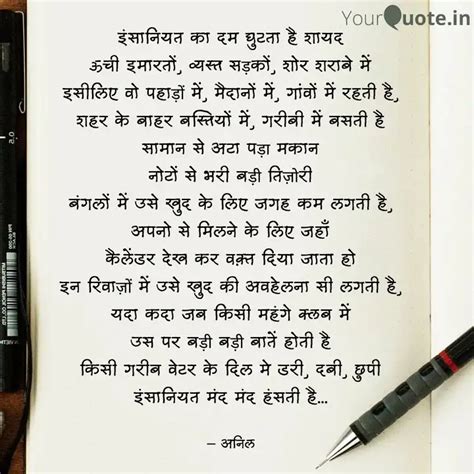 YourQuote.in
इंसानियत का दम घुटता है शायद
ऊची इमारतों, व्यस्त सड़कों, शोर शराबे में
इसीलिए वो पहाड़ों में, मैदानों में, गांवों में रहती है,
शहर के बाहर बस्तियों में, गरीबी में बसती है
सामान से अटा पड़ा मकान
नोटों से भरी बड़ी तिज़ोरी
बंगलों में उसे खुद के लिए जगह कम लगती है,
अपनो से मिलने के लिए जहाँ
कैलेंडर देख कर वक़्त दिया जाता हो
इन रिवाज़ों में उसे खुद की अवहेलना सी लगती है,
यदा कदा जब किसी महंगे क्लब में
उस पर बड़ी बड़ी बातें होती है
किसी गरीब वेटर के दिल मे डरी, दबी, छुपी
इंसानियत मंद मंद हंसती है...
– अनिल